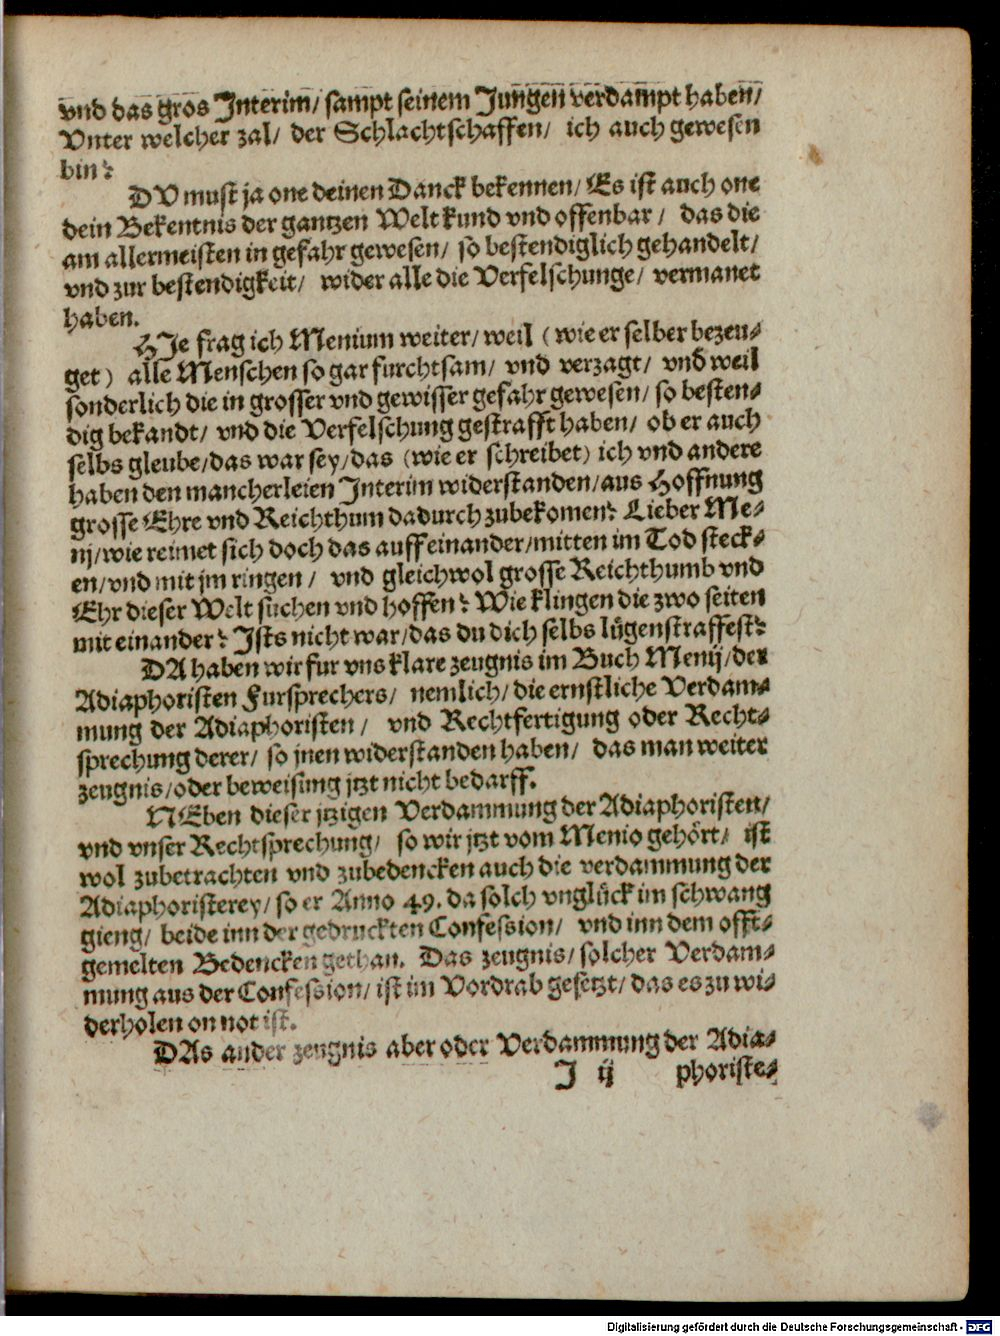 vnd das gros Interim/ sampt seinem Jungen verdampt haben/
Vnter welcher zal/ der Schlachtschaffen/ ich auch gewesen
bin?
DV must ja one deinen Danck bekennen/ Es ist auch one
dein Bekentnis der gantzen Welt kund vnd offenbar/ das die
am allermeisten in gefahr gewesen/ so bestendiglich gehandelt/
vnd zur bestendigkeit/ wider alle die Verfelschunge/ vermanet
haben.
HIe frag ich Menium weiter/ weil (wie er selber bezeu-
get) alle Menschen so gar furchtsam/ vnd verzagt/ vnd weil
sonderlich die in grosser vnd gewisser gefahr gewesen/ so besten-
dig bekandt/ vnd die Verfelschung gestrafft haben/ ob er auch
selbs gleube/ das war sey/ das (wie er schreibet) ich vnd andere
haben den mancherleien Interim widerstanden/ aus Hoffnung
grosse Ehre vnd Reichthum dadurch zubekomen? Lieber Me-
nij/ wie reimet sich doch das auff einander/ mitten im Tod steck-
en/ vnd mit jm ringen/ vnd gleichwol grosse Reichthumb vnd
Ehr dieser Welt suchen vnd hoffen? Wie klingen die zwo seiten
mit einander? Ists nicht war/ das du dich selbs lügenstraffest?
DA haben wir fur vns klare zeugnis im Buch Menij/ der
Adiaphoristen Fursprechers/ nemlich/ die ernstliche Verdam-
mung der Adiaphoristen/ vnd Rechtfertigung oder Recht-
sprechung derer/ so jnen widerstanden haben/ das man weiter
zeugnis/ oder beweisung jtzt nicht bedarff.
NEben dieser jtzigen Verdammung der Adiaphoristen/
vnd vnser Rechtsprechung/ so wir jtzt vom Menio gehört/ ist
wol zubetrachten vnd zubedencken auch die verdammung der
Adiaphoristerey/ so er Anno 49. da solch vnglück im schwang
gieng/ beide inn der gedruckten Confession/ vnd inn dem offt-
gemelten Bedencken gethan. Das zeugnis/ solcher Verdam-
mung aus der Confession/ ist im Vordrab gesetzt/ das es zu wi-
derholen on not ist.
DAs ander zeugnis aber oder Verdammung der Adia-
J ij phoriste-
Digitalisierung gefördert durch die Deutsche Forschungsgemeinschaft - DFG